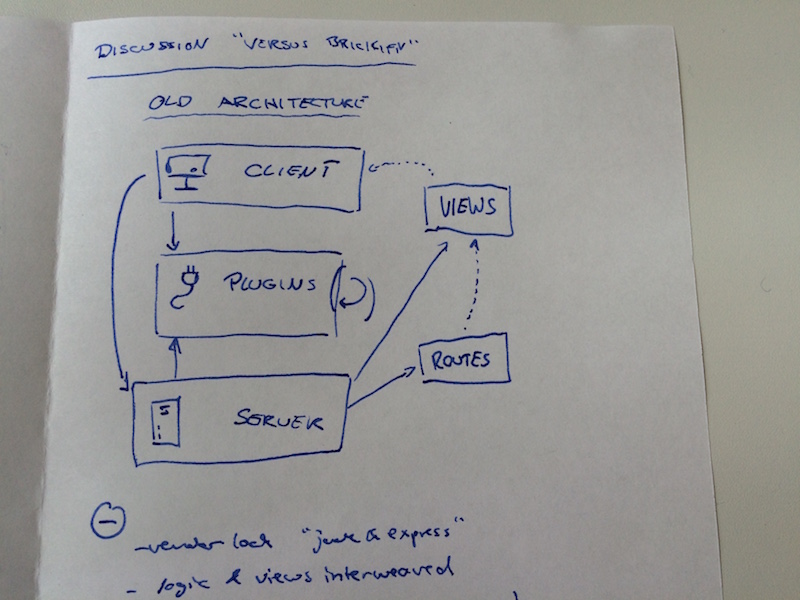 DISCUSSION "VERSUS BRICKIFY"
OLD ARCHITECTURE
CLIENT
VIEWS
PLUGINS
ROUTES
SERVER
- vendor lock "jade & express"
- logic & views interweaved